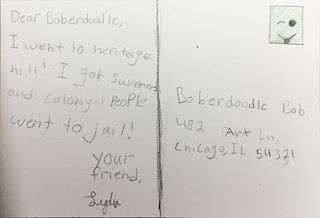 Dear Boberdoodle,
I went to heritage
hill! I got suveners
and colongel People
went to jail!
your
friend,
Lydia
Boberdoodle Bob
482 Art Ln.
Chicago, IL 54321